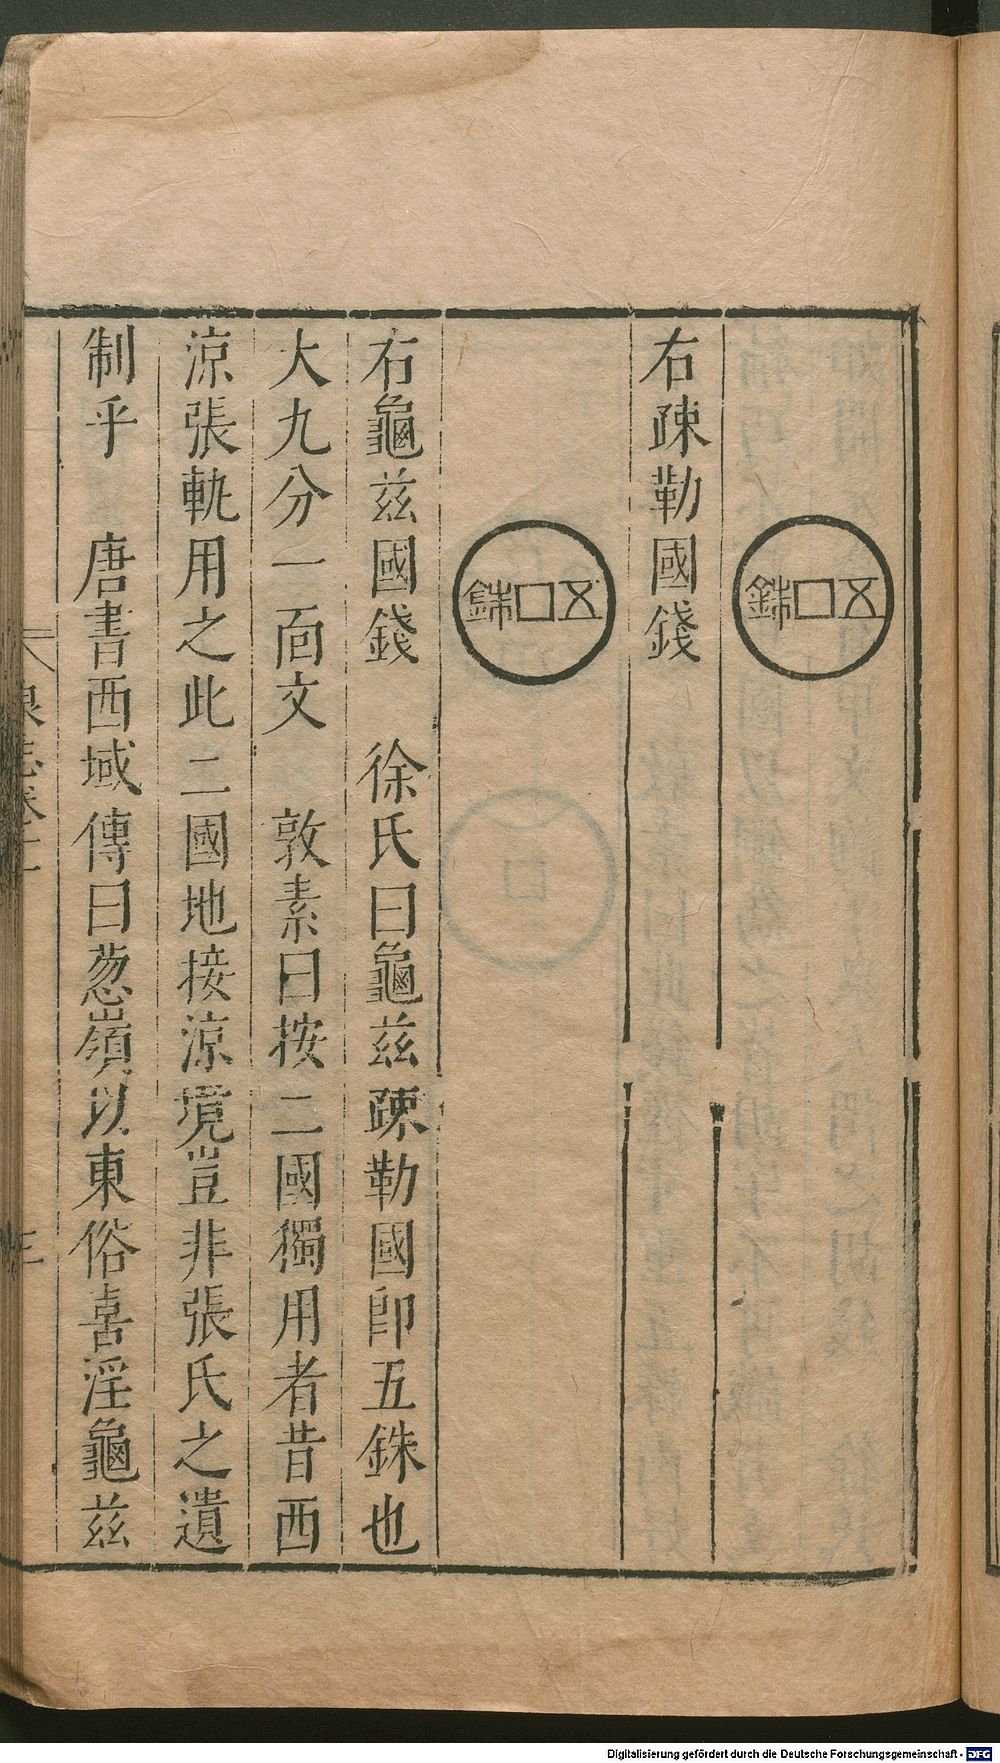 五銖
右疎勒國錢
五銖
右龜茲國錢　徐氏曰龜茲疎勒國即五銖也
大九分一面文　敦素曰按二國獨用者昔西
涼張軌用之此二國地接涼境豈非張氏之遺
制乎　唐書西域傳曰葱嶺以東俗喜淫龜茲
泉志卷十
三
Digitalisierung gefördert durch die Deutsche Forschungsgemeinschaft - DFG